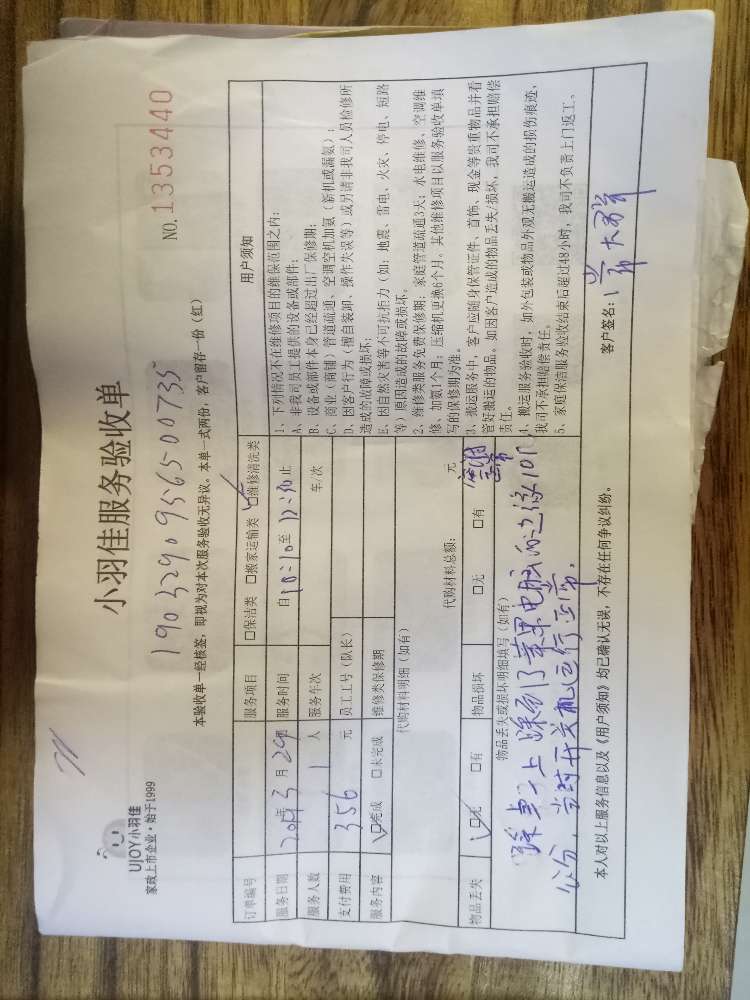 UJOY小羽佳
家政上市企业·始于1999
小羽佳服务验收单
NO. 1353440
190329095650073​5
本验收单一经核签，即视为对本次服务验收无异议。本单一式两份，客户留存一份（红）
订单编号 服务项目 □保洁类 □搬家运输类 □维修清洗类
服务日期 2019年3月29日 服务时间 自10:10至12:30止
服务人数 1 人 服务车次 车/次
支付费用 356 元 员工工号（队长）
服务内容 □完成 □未完成 维修类保修期
代购材料明细（如有）
代购材料总额： 元
物品丢失 □无 □有 物品损坏 □无 □有
物品丢失或损坏明细填写（如有）
除桌子上踩到了苹果电脑的边缘10几
公分，当时开关机运行正常。
用户须知
1、下列情况不在维修项目的维保范围之内：
A、非我司员工提供的设备或部件；
B、设备或部件本身已经超过出厂保修期；
C、商业（商铺）管道疏通、空调空机加氨（新机或漏氨）；
D、因客户行为（擅自装卸、操作失误等）或另请非我司人员检修所
造成的故障或损坏；
E、因自然灾害等不可抗拒力（如：地震、雷电、火灾、停电、短路
等）原因造成的故障或损坏。
2、维修类服务免费保修期：家庭管道疏通3天；水电维修、空调维
修、加氨1个月；压缩机更换6个月。其他维修项目以服务验收单填
写的保修期为准。
3、搬运服务中，客户应随身保管证件、首饰、现金等贵重物品并看
管好搬运的物品。如因客户造成的物品丢失/损坏，我司不承担赔偿
责任。
4、搬运服务验收时，如外包装或物品外观无搬运造成的损伤痕迹，
我司不承担赔偿责任。
5、家庭保洁服务验收结束后超过48小时，我司不负责上门返工。
本人对以上服务信息以及《用户须知》均已确认无误，不存在任何争议纠纷。
客户签名：